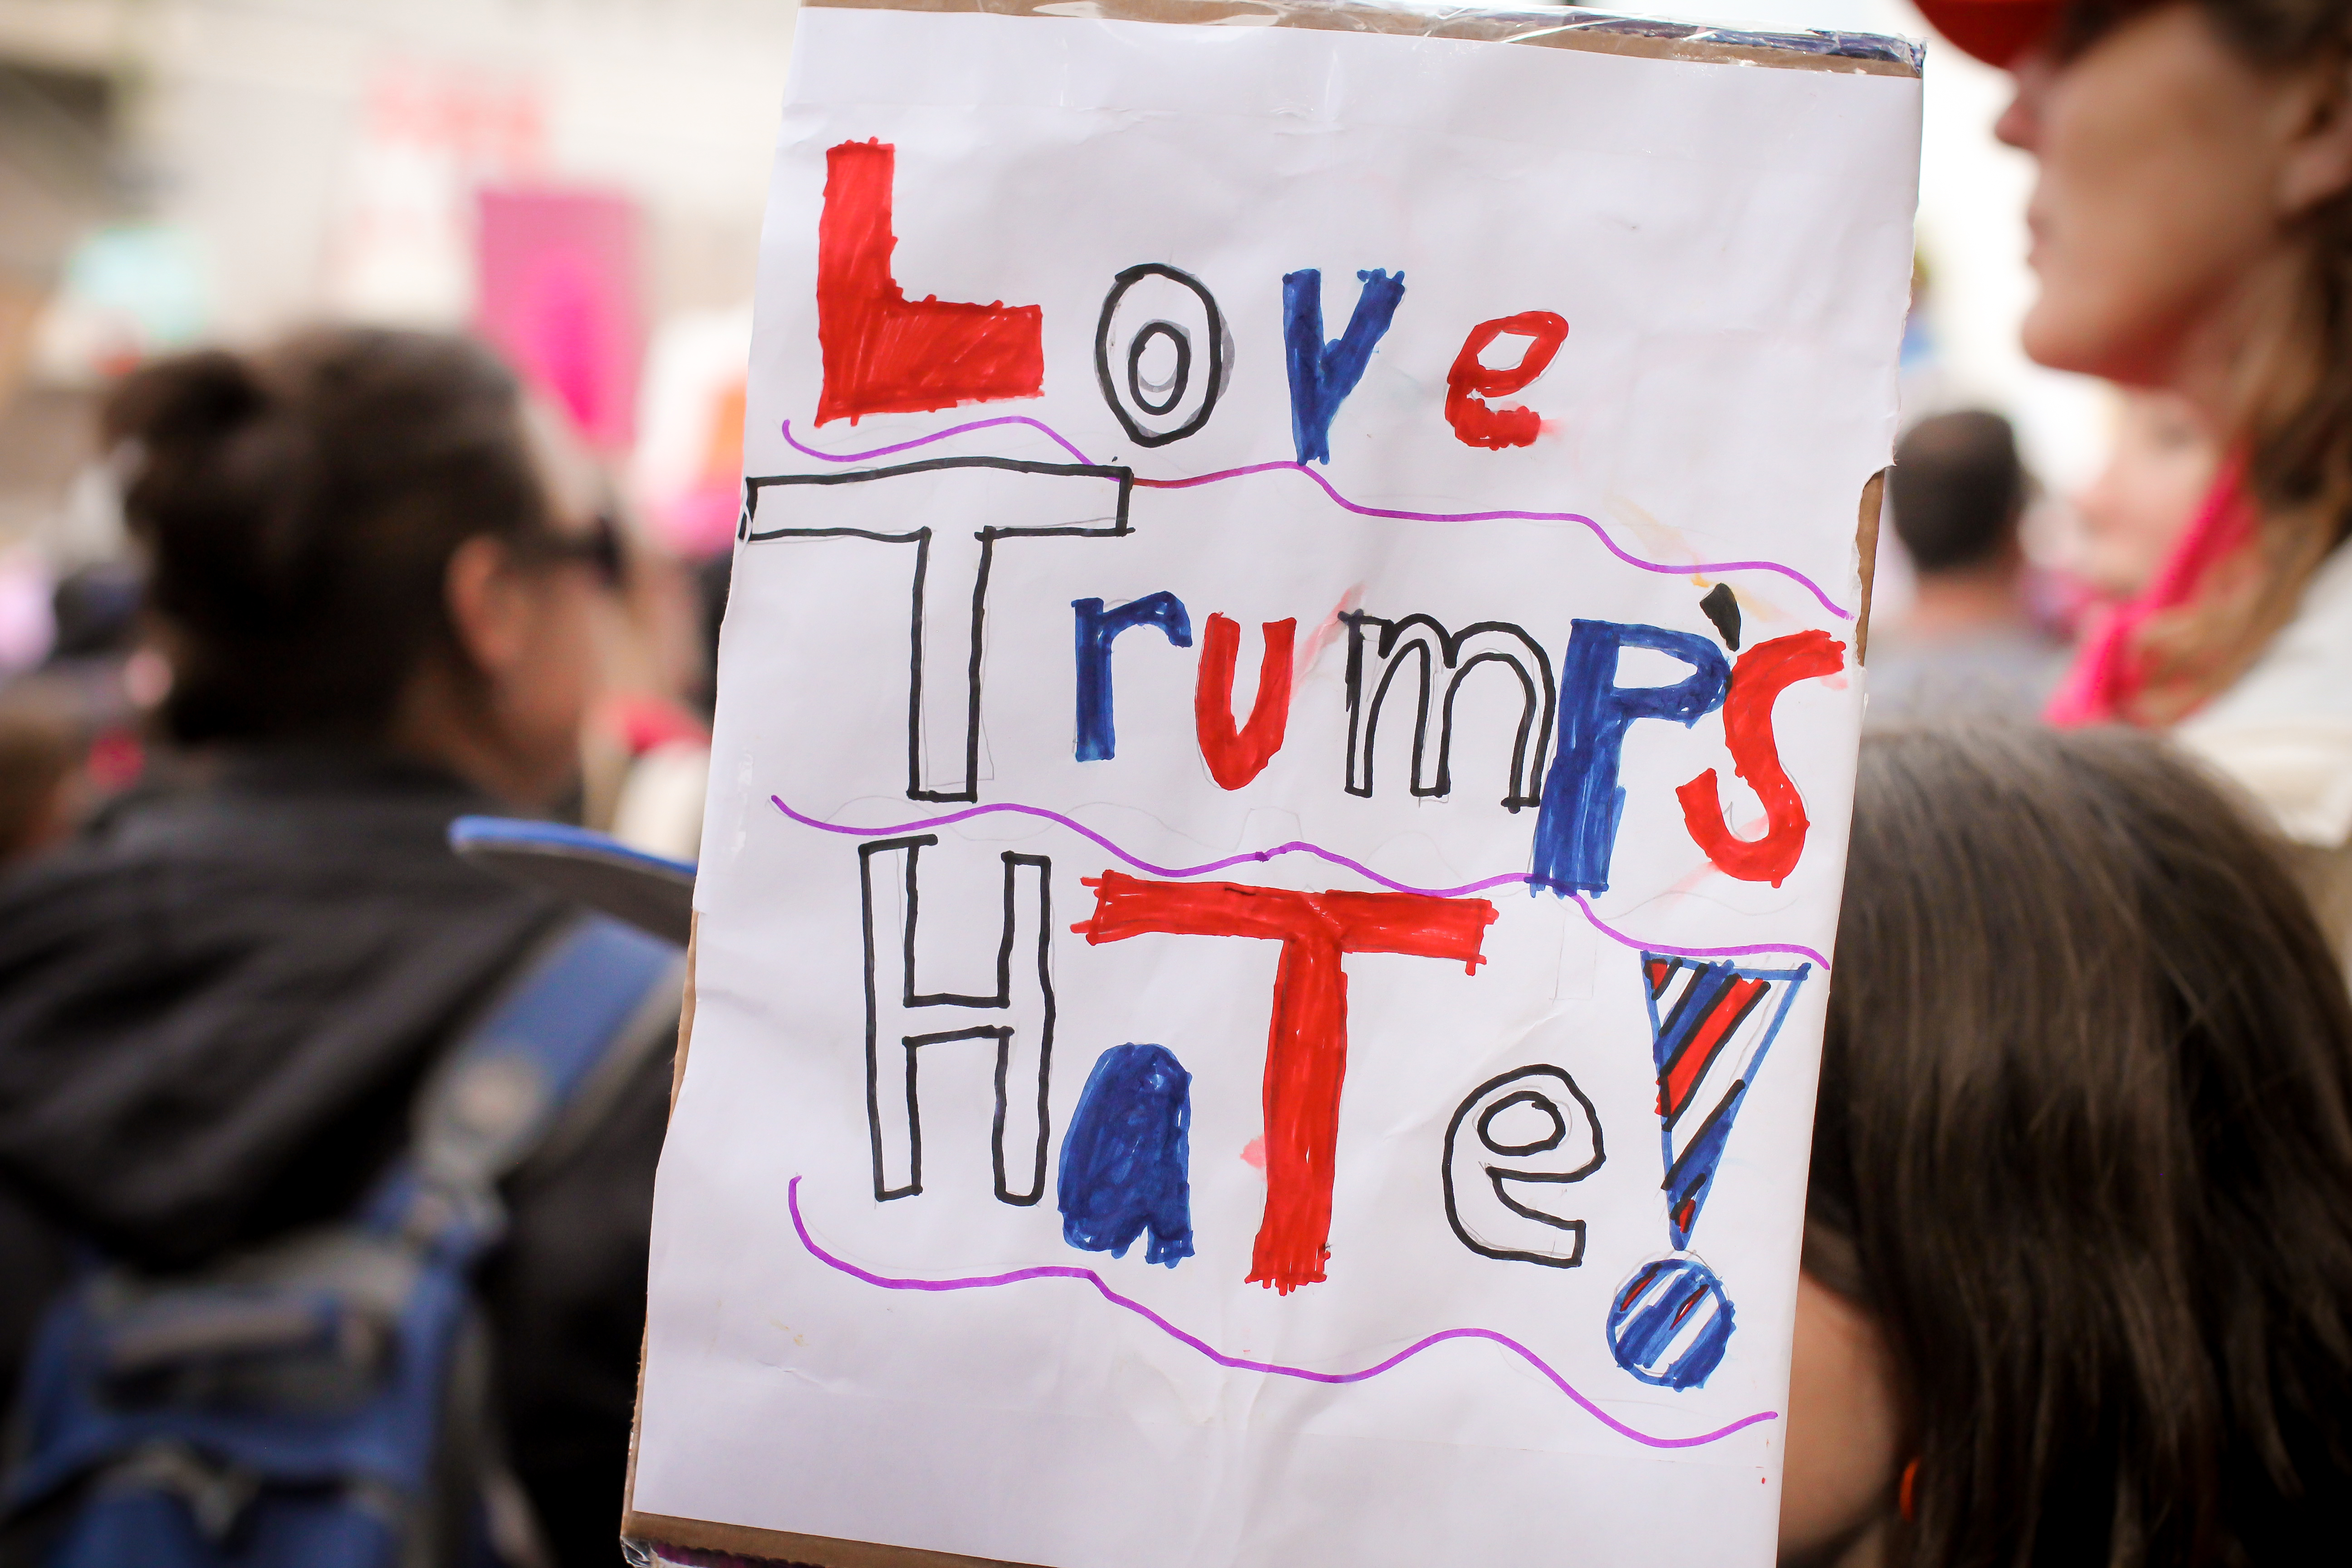 Love
Trump's
HaTe!